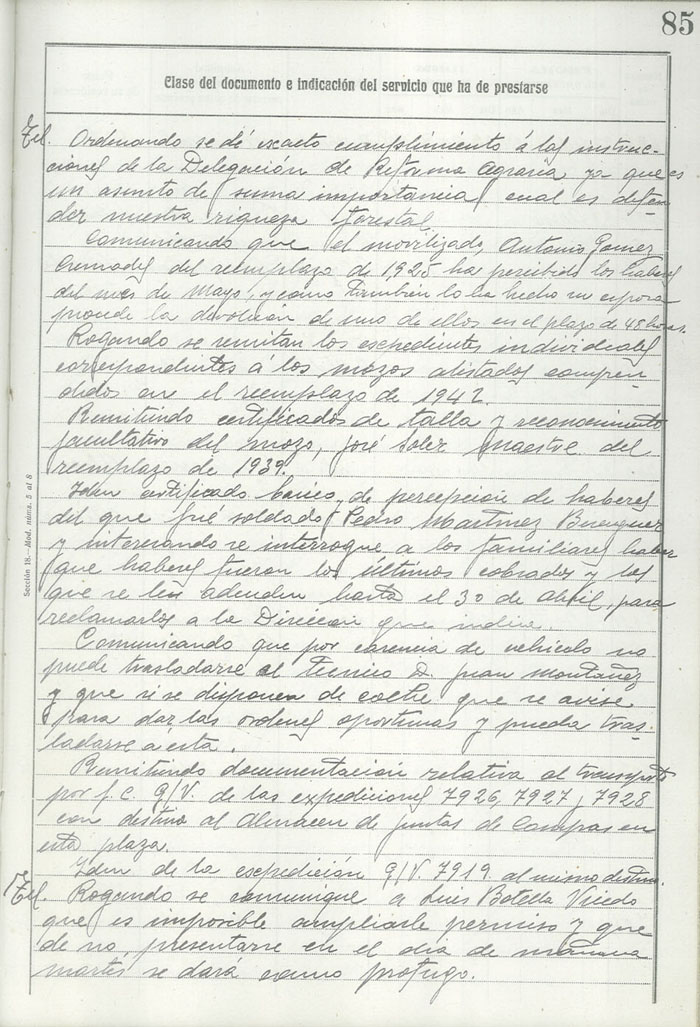 85
Clase del documento e indicación del servicio que ha de prestarse
Tel. Ordenando se dé exacto cumplimiento á las instruc-
ciones de la Delegación de Reforma Agraria ya que es
un asunto de suma importancia cual es defen
der nuestra riqueza forestal.
Comunicando que el movilizado, Antonio Gomez
Cremades del reemplazo de 1925 ha percibido los haberes
del mes de Mayo, y como tambien lo ha hecho su esposa
procede la devolución de uno de ellos en el plazo de 48 horas.
Rogando se remitan los expedientes individuales
correspondientes á los mozos alistados compren
didos en el reemplazo de 1942.
Remitiendo certificados de talla y reconocimiento
facultativo del mozo, José Soler Maestre del
reemplazo de 1939.
Idem certificado de percepcion de haberes
del que fué soldado Pedro Martinez Berenguer
y interesando se interrogue a los familiares
que haberes fueron los últimos cobrados y los
que se les adeuden hasta el 30 de Abril, para
reclamarlos a la Direccion que indica.
Comunicando que por carencia de vehiculo no
puede trasladarse el tecnico D. Juan Montañez
y que si se dispone de coche que se avise
para dar las ordenes oportunas y pueda tras-
ladarse á esta.
Remitiendo documentacion relativa al transporte
por f.c. g/v. de las expediciones 7926, 7927 y 7928
con destino al Almacen de Juntas de Compras en
esta plaza.
Idem de la expedición g/v. 7919 al mismo destino.
Tel. Rogando se comunique a Luis Botella Vicedo
que es imposible ampliarle permiso y que
de no presentarse en el dia de mañana
martes se dará como profugo.
Sección 18.-Mod. núms. 5 al 8